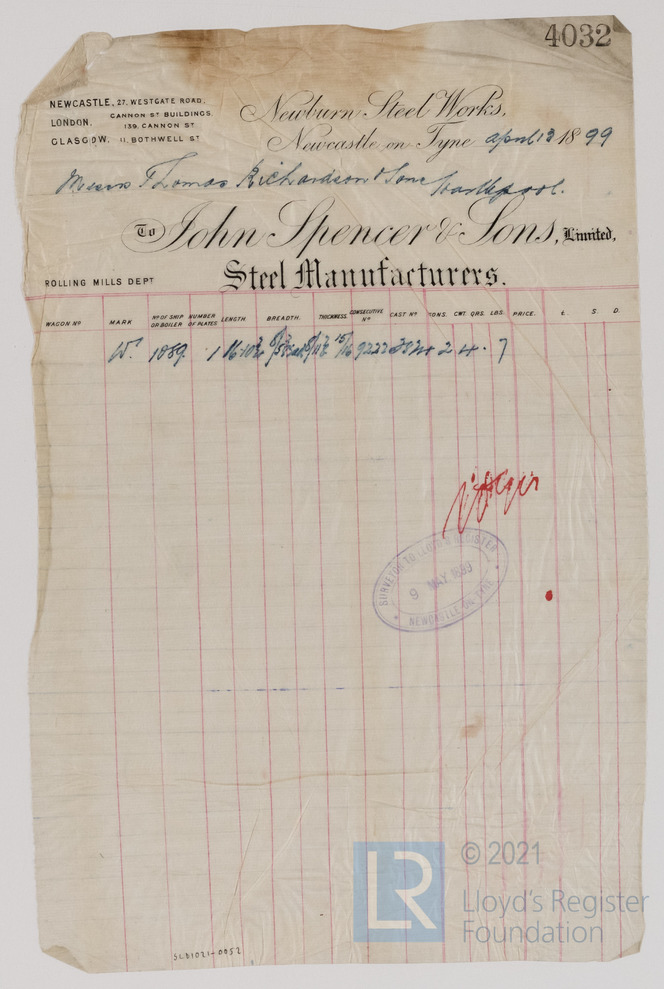 4032
NEWCASTLE, 27, WESTGATE ROAD,
LONDON, CANNON ST BUILDINGS,
139, CANNON ST
GLASGOW, 11, BOTHWELL ST
Newburn Steel Works,
Newcastle on Tyne April 13 1899
Messrs Thomas Richardson & Sons Hartlepool.
To John Spencer & Sons, Limited,
Steel Manufacturers.
ROLLING MILLS DEPT
WAGON No MARK No OF SHIP OR BOILER NUMBER OF PLATES LENGTH. BREADTH. THICKNESS. CONSECUTIVE No CAST No TONS. CWT. QRS. LBS. PRICE. £ S. D.
1089 1 15/16 9222 2 4 7
SURVEYOR TO LLOYD'S REGISTER
9 MAY 1899
NEWCASTLE-ON-TYNE
SLB1021-0052
LR
© 2021
Lloyd's Register
Foundation